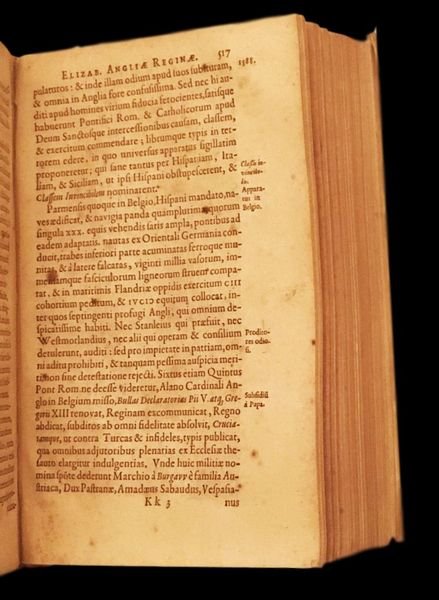 ELIZAB. ANGLIÆ REGINÆ. 517
1588.
pulaturos: & inde illam odium apud suos subituram,
& omnia in Anglia fore confusissima. Sed nec hi au-
diti apud homines virium fiducia ferocientes, satisque
habuerunt Pontifici Rom. & Catholicorum apud
Deum Sanctosque intercessionibus causam, classem,
& exercitum commendare; librumque typis in ter-
rorem edere, in quo universus apparatus sigillatim
proponeretur; qui sane tantus per Hispaniam, Ita-
liam, & Siciliam, ut ipsi Hispani obstupescerent, &
Classem Invincibilem nominarent.
Classis in-
vincibi-
lis.
Parmensis quoque in Belgio, Hispani mandato, na-
Appara-
tus in
Belgio.
ves ædificat, & navigia panda quamplurima, quorum
singula XXX. equis vehendis satis ampla, pontibus ad
eadem adaptatis. nautas ex Orientali Germania con-
ducit, trabes inferiori parte acuminatas ferroque mu-
nitas, & à latere falcatas, viginti millia vasorum, im-
mensamque fasciculorum ligneorum struem compa-
rat. & in maritimis Flandriæ oppidis exercitum CIII
cohortium peditum, & equitum collocat, in-
ter quos septingenti profugi Angli, qui omnium de-
spicatissime habiti. Nec Stanleius qui præfuit, nec
Westmorlandius, nec alii qui operam & consilium
Prodito-
res odio-
si.
detulerunt, auditi: sed pro impietate in patriam, om-
ni aditu prohibiti, & tanquam pessima auspicia meri-
to non sine detestatione rejecti. Sixtus etiam Quintus
Pont. Rom. ne deesse videretur, Alano Cardinali An-
glo in Belgium misso, Bullas Declaratorias Pii V. atq, Gre-
Subsidia
à Papa.
gorii XIII renovat, Reginam excommunicat, Regno
abdicat, subditos ab omni fidelitate absolvit, Crucia-
tamque, ut contra Turcas & infideles, typis publicat,
qua omnibus adjutoribus plenarias ex Ecclesiæ the-
sauro elargitur indulgentias. Vnde huic militiæ no-
mina spõnte dederunt Marchio à Burgavv è familia Au-
striaca, Dux Pastranæ, Amadæus Sabaudus, Vespasia-
Kk 3 nus